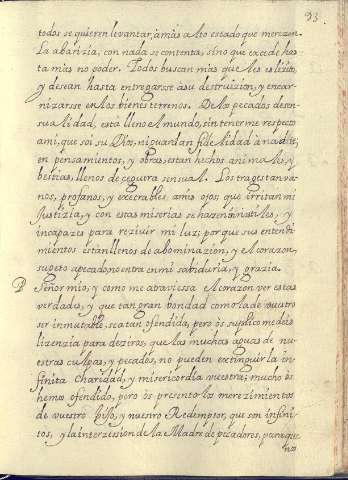 93.
todos se quieren levantar, à màs alto estado que merezen.
La abarizia, con nada se contenta, sino que excede has
ta màs no poder. Todos buscan màs que les es lizito,
y desean hasta entregarse à su destruizion, y encar-
nizarsse en los bienes terrenos. De los pecados de sen-
sualidad, està lleno el mundo, sin tenerme respecto
a mi, que soi su Dios, ni guardan fidelidad à nadie,
en pensamientos, y obras, estan hechos animales, y
bestias, llenos de çeguera sensual. Los trages tan va-
nos, profanos, y execrables, à mis ojos; que irritan mi
Justizia, y con estas miserias se hazen inutiles, y
incapazes para rezivir mi luz; porque sus entendi-
mientos estàn llenos de abominazion, y el corazon,
sugeto a pecado no entra en mi sabiduria, y grazia.
P Señor mio, y como me atraviessa el corazon ver estas
verdades, y que tan gran bondad como la de vuestro
ser inmutable, sea tan ofendida, pero òs suplico me deis
lizenzia para deziros, que las muchas aguas de nu-
estras culpas, y pecados, no pueden extinguir la in-
finita charidad, y misericordia vuestra; mucho òs
hemos ofendido, pero òs presento los merezimientos
de vuestro Hijo, y nuestro Redemptor, que son infini-
tos, y la interzession de la Madre de pecadores, para que
nos